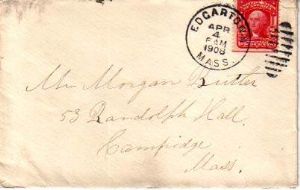 EDGARTOWN
APR
4
6 AM
1908
MASS.
Mr Morgan Butler
53 Randolph Hall,
Campidge
Mass.